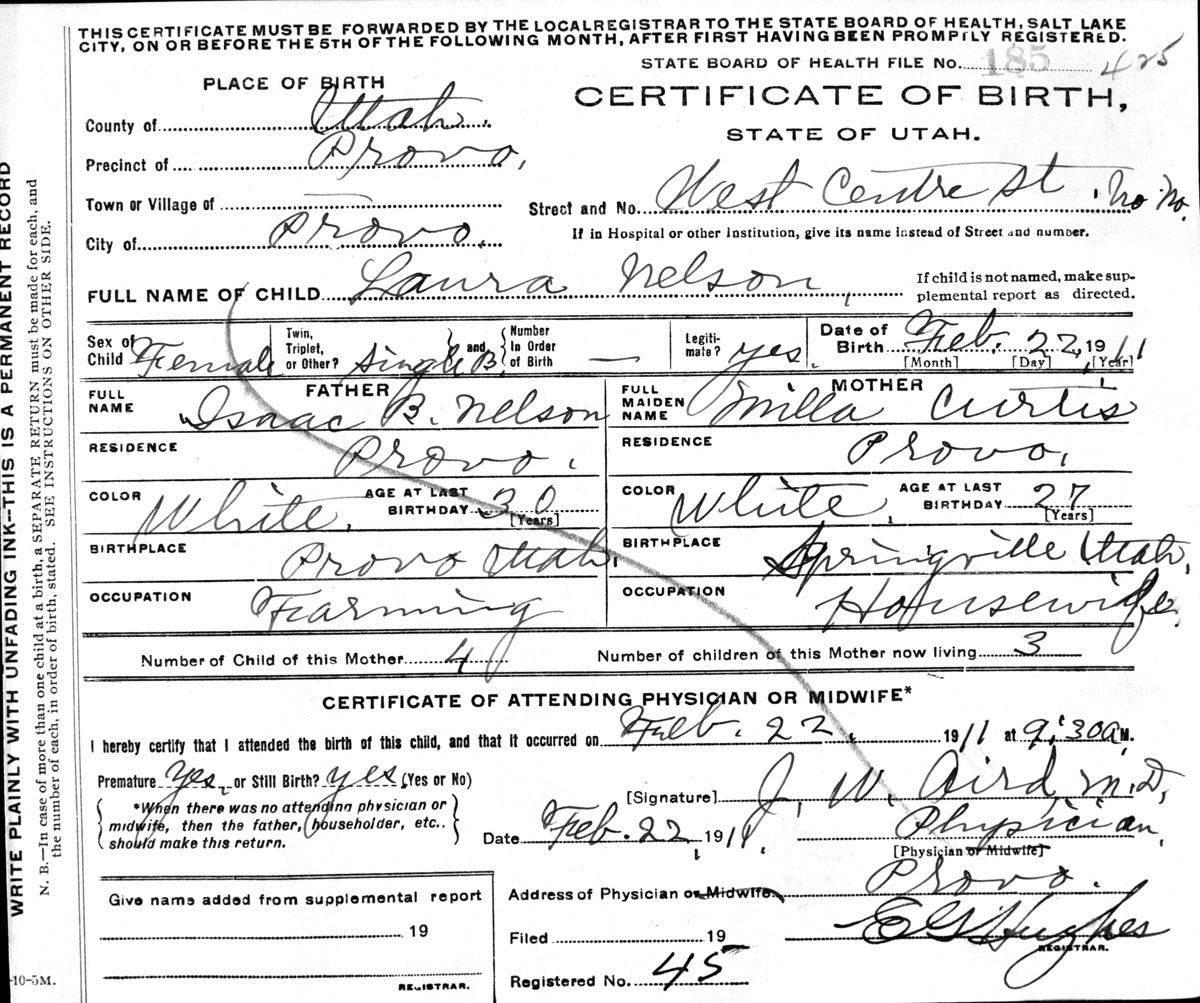 THIS CERTIFICATE MUST BE FORWARDED BY THE LOCAL REGISTRAR TO THE STATE BOARD OF HEALTH, SALT LAKE
CITY, ON OR BEFORE THE 5TH OF THE FOLLOWING MONTH, AFTER FIRST HAVING BEEN PROMPTLY REGISTERED.
STATE BOARD OF HEALTH FILE No. 185 425
PLACE OF BIRTH
CERTIFICATE OF BIRTH,
STATE OF UTAH.
County of Utah.
Precinct of Provo,
Town or Village of —
Street and No. West Centre St. No No.
City of Provo.
If in Hospital or other Institution, give its name instead of Street and number.
FULL NAME OF CHILD Laura Nelson,
If child is not named, make sup-
plemental report as directed.
Sex of Child Female
Twin, Triplet, or Other? Single B. and Number In Order of Birth —
Legiti-mate? yes.
Date of Birth Feb. 22, 1911
[Month] [Day] [Year]
FATHER
FULL NAME Isaac B. Nelson
MOTHER
FULL MAIDEN NAME Milla Curtis
RESIDENCE Provo.
RESIDENCE Provo.
COLOR White. AGE AT LAST BIRTHDAY 30 [Years]
COLOR White, AGE AT LAST BIRTHDAY 27 [Years]
BIRTHPLACE Provo Utah.
BIRTHPLACE Springville Utah,
OCCUPATION Farming
OCCUPATION Housewife.
Number of Child of this Mother 4 Number of children of this Mother now living 3
CERTIFICATE OF ATTENDING PHYSICIAN OR MIDWIFE*
I hereby certify that I attended the birth of this child, and that it occurred on Feb. 22, 1911 at 9:30 a M.
Premature yes, or Still Birth? yes (Yes or No)
*When there was no attending physician or
midwife, then the father, householder, etc..
should make this return.
[Signature] J. W. Aird M.D,
Date Feb. 22, 1911, Physician,
[Physician or Midwife]
Address of Physician or Midwife. Provo.
Give name added from supplemental report
19
REGISTRAR.
Filed 19 E G Hughes
REGISTRAR.
Registered No. 45
WRITE PLAINLY WITH UNFADING INK--THIS IS A PERMANENT RECORD
N. B.—In case of more than one child at a birth, a SEPARATE RETURN must be made for each, and
the number of each, in order of birth, stated. SEE INSTRUCTIONS ON OTHER SIDE.
-10-5M.